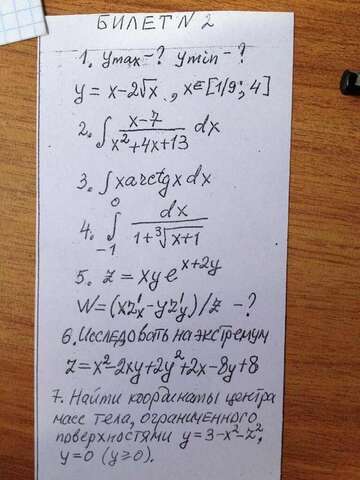 БИЛЕТ N 2
1. ymax-? ymin-?
y = x-2√x , x∈[1/9; 4]
2. ∫ (x-7)/(x²+4x+13) dx
3. ∫xarctgxdx
4. ∫₋₁⁰ dx/(1+∛(x+1))
5. z = xye^(x+2y)
W=(xz'x-yz'y)/z -?
6. Исследовать на экстремум
z=x²-2xy+2y²+2x-8y+8
7. Найти координаты центра
масс тела, ограниченного
поверхностями y=3-x²-z²,
y=0 (y≥0).